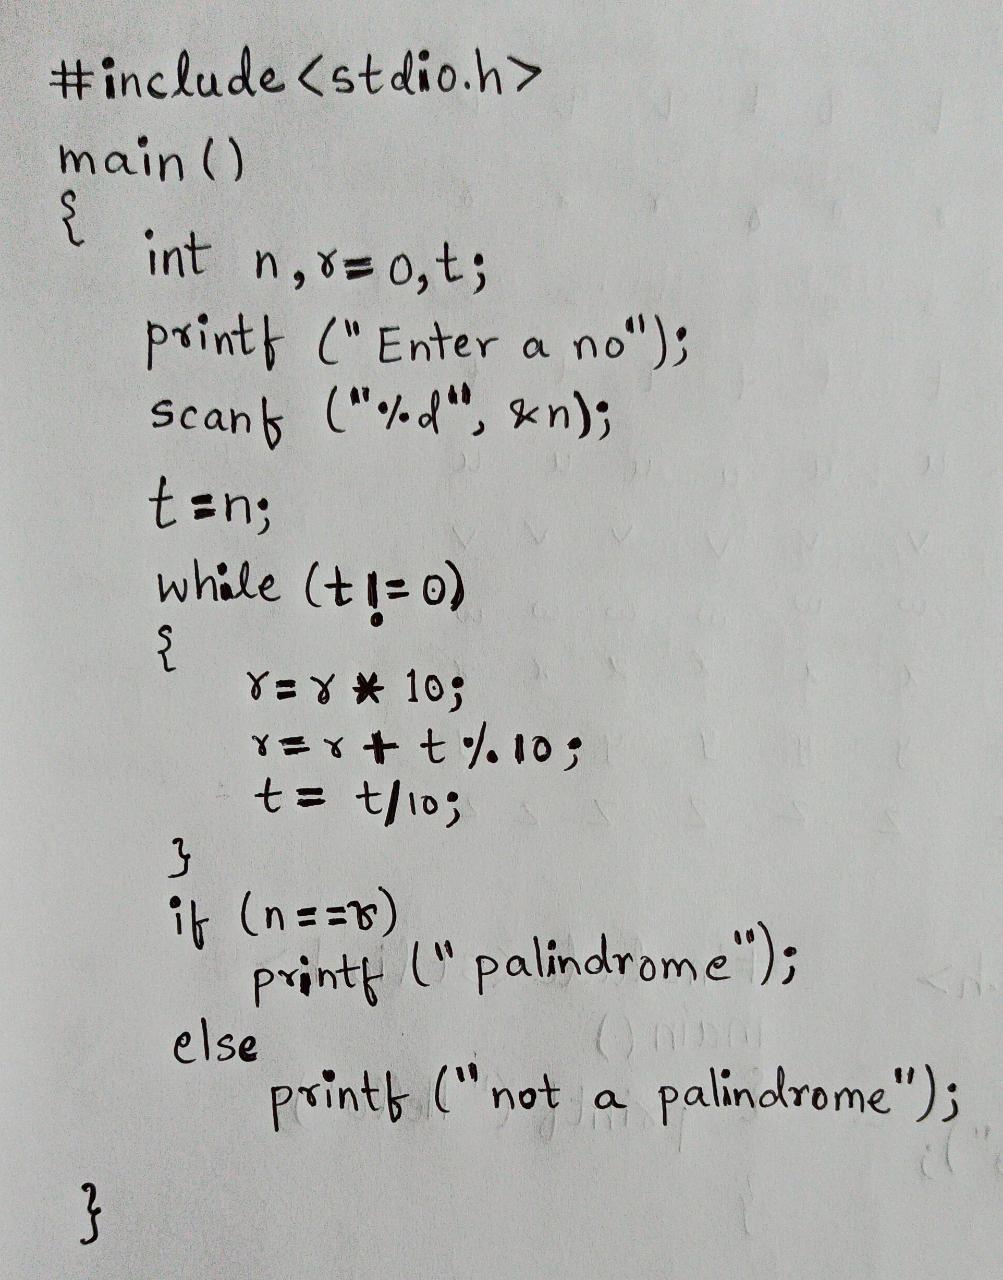 #include<stdio.h>
main()
{
int n,r=0,t;
printf ("Enter a no");
scanf ("%d", &n);
t=n;
while (t!=0)
{
r=r * 10;
r=r + t % 10;
t= t/10;
}
if (n==r)
printf ("palindrome");
else
printf ("not a palindrome");
}